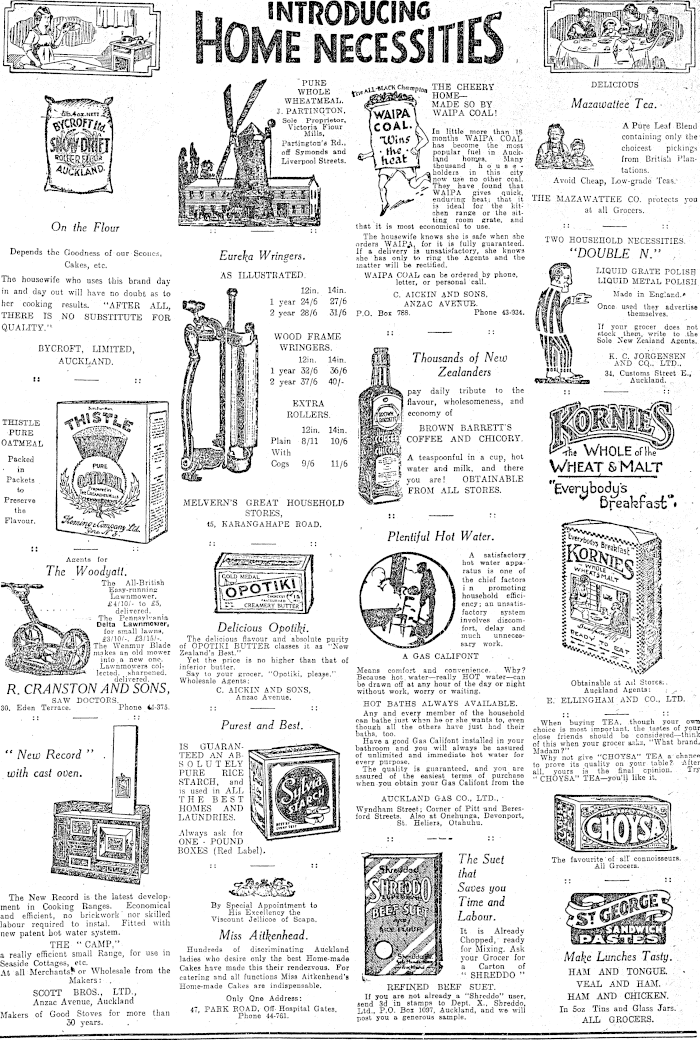 INTRODUCING
HOME NECESSITIES
BYCROFT Ltd.
SNOWDRIFT
ROLLER FLOUR
AUCKLAND
On the Flour
Depends the Goodness of our Scones,
Cakes, etc.
The housewife who uses this brand day
in and day out will have no doubt as to
her cooking results. "AFTER ALL,
THERE IS NO SUBSTITUTE FOR
QUALITY."
BYCROFT, LIMITED,
AUCKLAND.
THISTLE
PURE
OATMEAL
Packed
in
Packets
to
Preserve
the
Flavour.
THISTLE
PURE
OATMEAL
Fleming & Company Ltd.
Agents for
The Woodyatt.
The All-British
Easy-running
Lawnmower,
£4/10/- to £5,
delivered.
The Pennsylvania
Delta Lawnmower,
for small lawns,
£3/10/-, £3/15/-.
The Wenmur Blade
makes an old mower
into a new one.
Lawnmowers col-
lected, sharpened,
delivered.
R. CRANSTON AND SONS,
SAW DOCTORS.
30, Eden Terrace. Phone 43-375.
"New Record"
with cast oven.
The New Record is the latest develop-
ment in Cooking Ranges. Economical
and efficient, no brickwork nor skilled
labour required to instal. Fitted with
new patent hot water system.
THE "CAMP,"
a really efficient small Range, for use in
Seaside Cottages, etc.
At all Merchants, or Wholesale from the
Makers:
SCOTT BROS., LTD.,
Anzac Avenue, Auckland
Makers of Good Stoves for more than
50 years.
PURE
WHOLE
WHEATMEAL.
J. PARTINGTON,
Sole Proprietor,
Victoria Flour
Mills,
Partington's Rd.,
off Symonds and
Liverpool Streets.
Eureka Wringers.
AS ILLUSTRATED.
12in. 14in.
1 year 24/6 27/6
2 year 28/6 31/6
WOOD FRAME
WRINGERS.
12in. 14in.
1 year 32/6 36/6
2 year 37/6 40/-
EXTRA
ROLLERS.
12in. 14in.
Plain 8/11 10/6
With
Cogs 9/6 11/6
MELVERN'S GREAT HOUSEHOLD
STORES,
45, KARANGAHAPE ROAD.
GOLD MEDAL
OPOTIKI
CREAMERY BUTTER
Delicious Opotiki.
The delicious flavour and absolute purity
of OPOTIKI BUTTER classes it as "New
Zealand's Best."
Yet the price is no higher than that of
inferior butter.
Say to your grocer, "Opotiki, please."
Wholesale Agents:
C. AICKIN AND SONS,
Anzac Avenue.
Purest and Best.
IS GUARAN-
TEED AN AB-
SOLUTELY
PURE RICE
STARCH, and
is used in ALL
THE BEST
HOMES AND
LAUNDRIES.
Always ask for
ONE-POUND
BOXES (Red Label).
STARCH
By Special Appointment to
His Excellency the
Viscount Jellicoe of Scapa.
Miss Aitkenhead.
Hundreds of discriminating Auckland
ladies who desire only the best Home-made
Cakes have made this their rendezvous. For
catering and all functions Miss Aitkenhead's
Home-made Cakes are indispensable.
Only One Address:
47, PARK ROAD, Off Hospital Gates,
Phone 44-761.
The ALL-BLACK Champion
WAIPA
COAL.
Wins
the
heat
THE CHEERY
HOME—
MADE SO BY
WAIPA COAL!
In little more than 18
months WAIPA COAL
has become the most
popular fuel in Auck-
land homes. Many
thousand house-
holders in this city
now use no other coal.
They have found that
WAIPA gives quick,
enduring heat; that it
is ideal for the kit-
chen range or the sit-
ting room grate, and
that it is most economical to use.
The housewife knows she is safe when she
orders WAIPA, for it is fully guaranteed.
If a delivery is unsatisfactory, she knows
she has only to ring the Agents and the
matter will be rectified.
WAIPA COAL can be ordered by phone,
letter, or personal call.
C. AICKIN AND SONS,
ANZAC AVENUE.
P.O. Box 788. Phone 43-934.
COFFEE
Thousands of New
Zealanders
pay daily tribute to the
flavour, wholesomeness, and
economy of
BROWN BARRETT'S
COFFEE AND CHICORY.
A teaspoonful in a cup, hot
water and milk, and there
you are! OBTAINABLE
FROM ALL STORES.
Plentiful Hot Water.
A satisfactory
hot water appa-
ratus is one of
the chief factors
in promoting
household effici-
ency; an unsatis-
factory system
involves discom-
fort, delay and
much unneces-
sary work.
A GAS CALIFONT
Means comfort and convenience. Why?
Because hot water—really HOT water—can
be drawn off at any hour of the day or night
without work, worry or waiting.
HOT BATHS ALWAYS AVAILABLE.
Any and every member of the household
can bathe just when he or she wants to, even
though all the others have just had their
baths, too.
Have a good Gas Califont installed in your
bathroom and you will always be assured
of unlimited and immediate hot water for
every purpose.
The quality is guaranteed, and you are
assured of the easiest terms of purchase
when you obtain your Gas Califont from the
AUCKLAND GAS CO., LTD.,
Wyndham Street; Corner of Pitt and Beres-
ford Streets. Also at Onehunga, Devonport,
St. Heliers, Otahuhu.
Shredded
SHREDDO
BEEF SUET
AND RICE FLOUR
The Suet
that
Saves you
Time and
Labour.
It is Already
Chopped, ready
for Mixing. Ask
your Grocer for
a Carton of
"SHREDDO"
REFINED BEEF SUET.
If you are not already a "Shreddo" user,
send 3d in stamps to Dept. X., Shreddo,
Ltd., P.O. Box 1097, Auckland, and we will
post you a generous sample.
DELICIOUS
Mazawattee Tea.
A Pure Leaf Blend
containing only the
choicest pickings
from British Plan-
tations.
Avoid Cheap, Low-grade Teas.
THE MAZAWATTEE CO. protects you
at all Grocers.
TWO HOUSEHOLD NECESSITIES.
"DOUBLE N."
LIQUID GRATE POLISH
LIQUID METAL POLISH
Made in England.
Once used they advertise
themselves.
If your grocer does not
stock them, write to the
Sole New Zealand Agents.
K. C. JORGENSEN
AND CO., LTD.,
34, Customs Street E.,
Auckland.
KORNIES
The WHOLE of the
WHEAT & MALT
"Everybody's
Breakfast".
Everybodys Breakfast
KORNIES
WHOLE
WHEAT & MALT
READY TO EAT
Obtainable at All Stores.
Auckland Agents:
E. ELLINGHAM AND CO., LTD.
When buying TEA, though your own
choice is most important, the tastes of your
close friends should be considered—think
of this when your grocer asks, "What brand,
Madam?"
Why not give "CHOYSA" TEA a chance
to prove its quality on your table? After
all, yours is the final opinion. Try
"CHOYSA" TEA—you'll like it.
CHOYSA
The favourite of all connoisseurs.
All Grocers.
ST GEORGE
SANDWICH
PASTES
Make Lunches Tasty.
HAM AND TONGUE.
VEAL AND HAM.
HAM AND CHICKEN.
In 5oz Tins and Glass Jars.
ALL GROCERS.